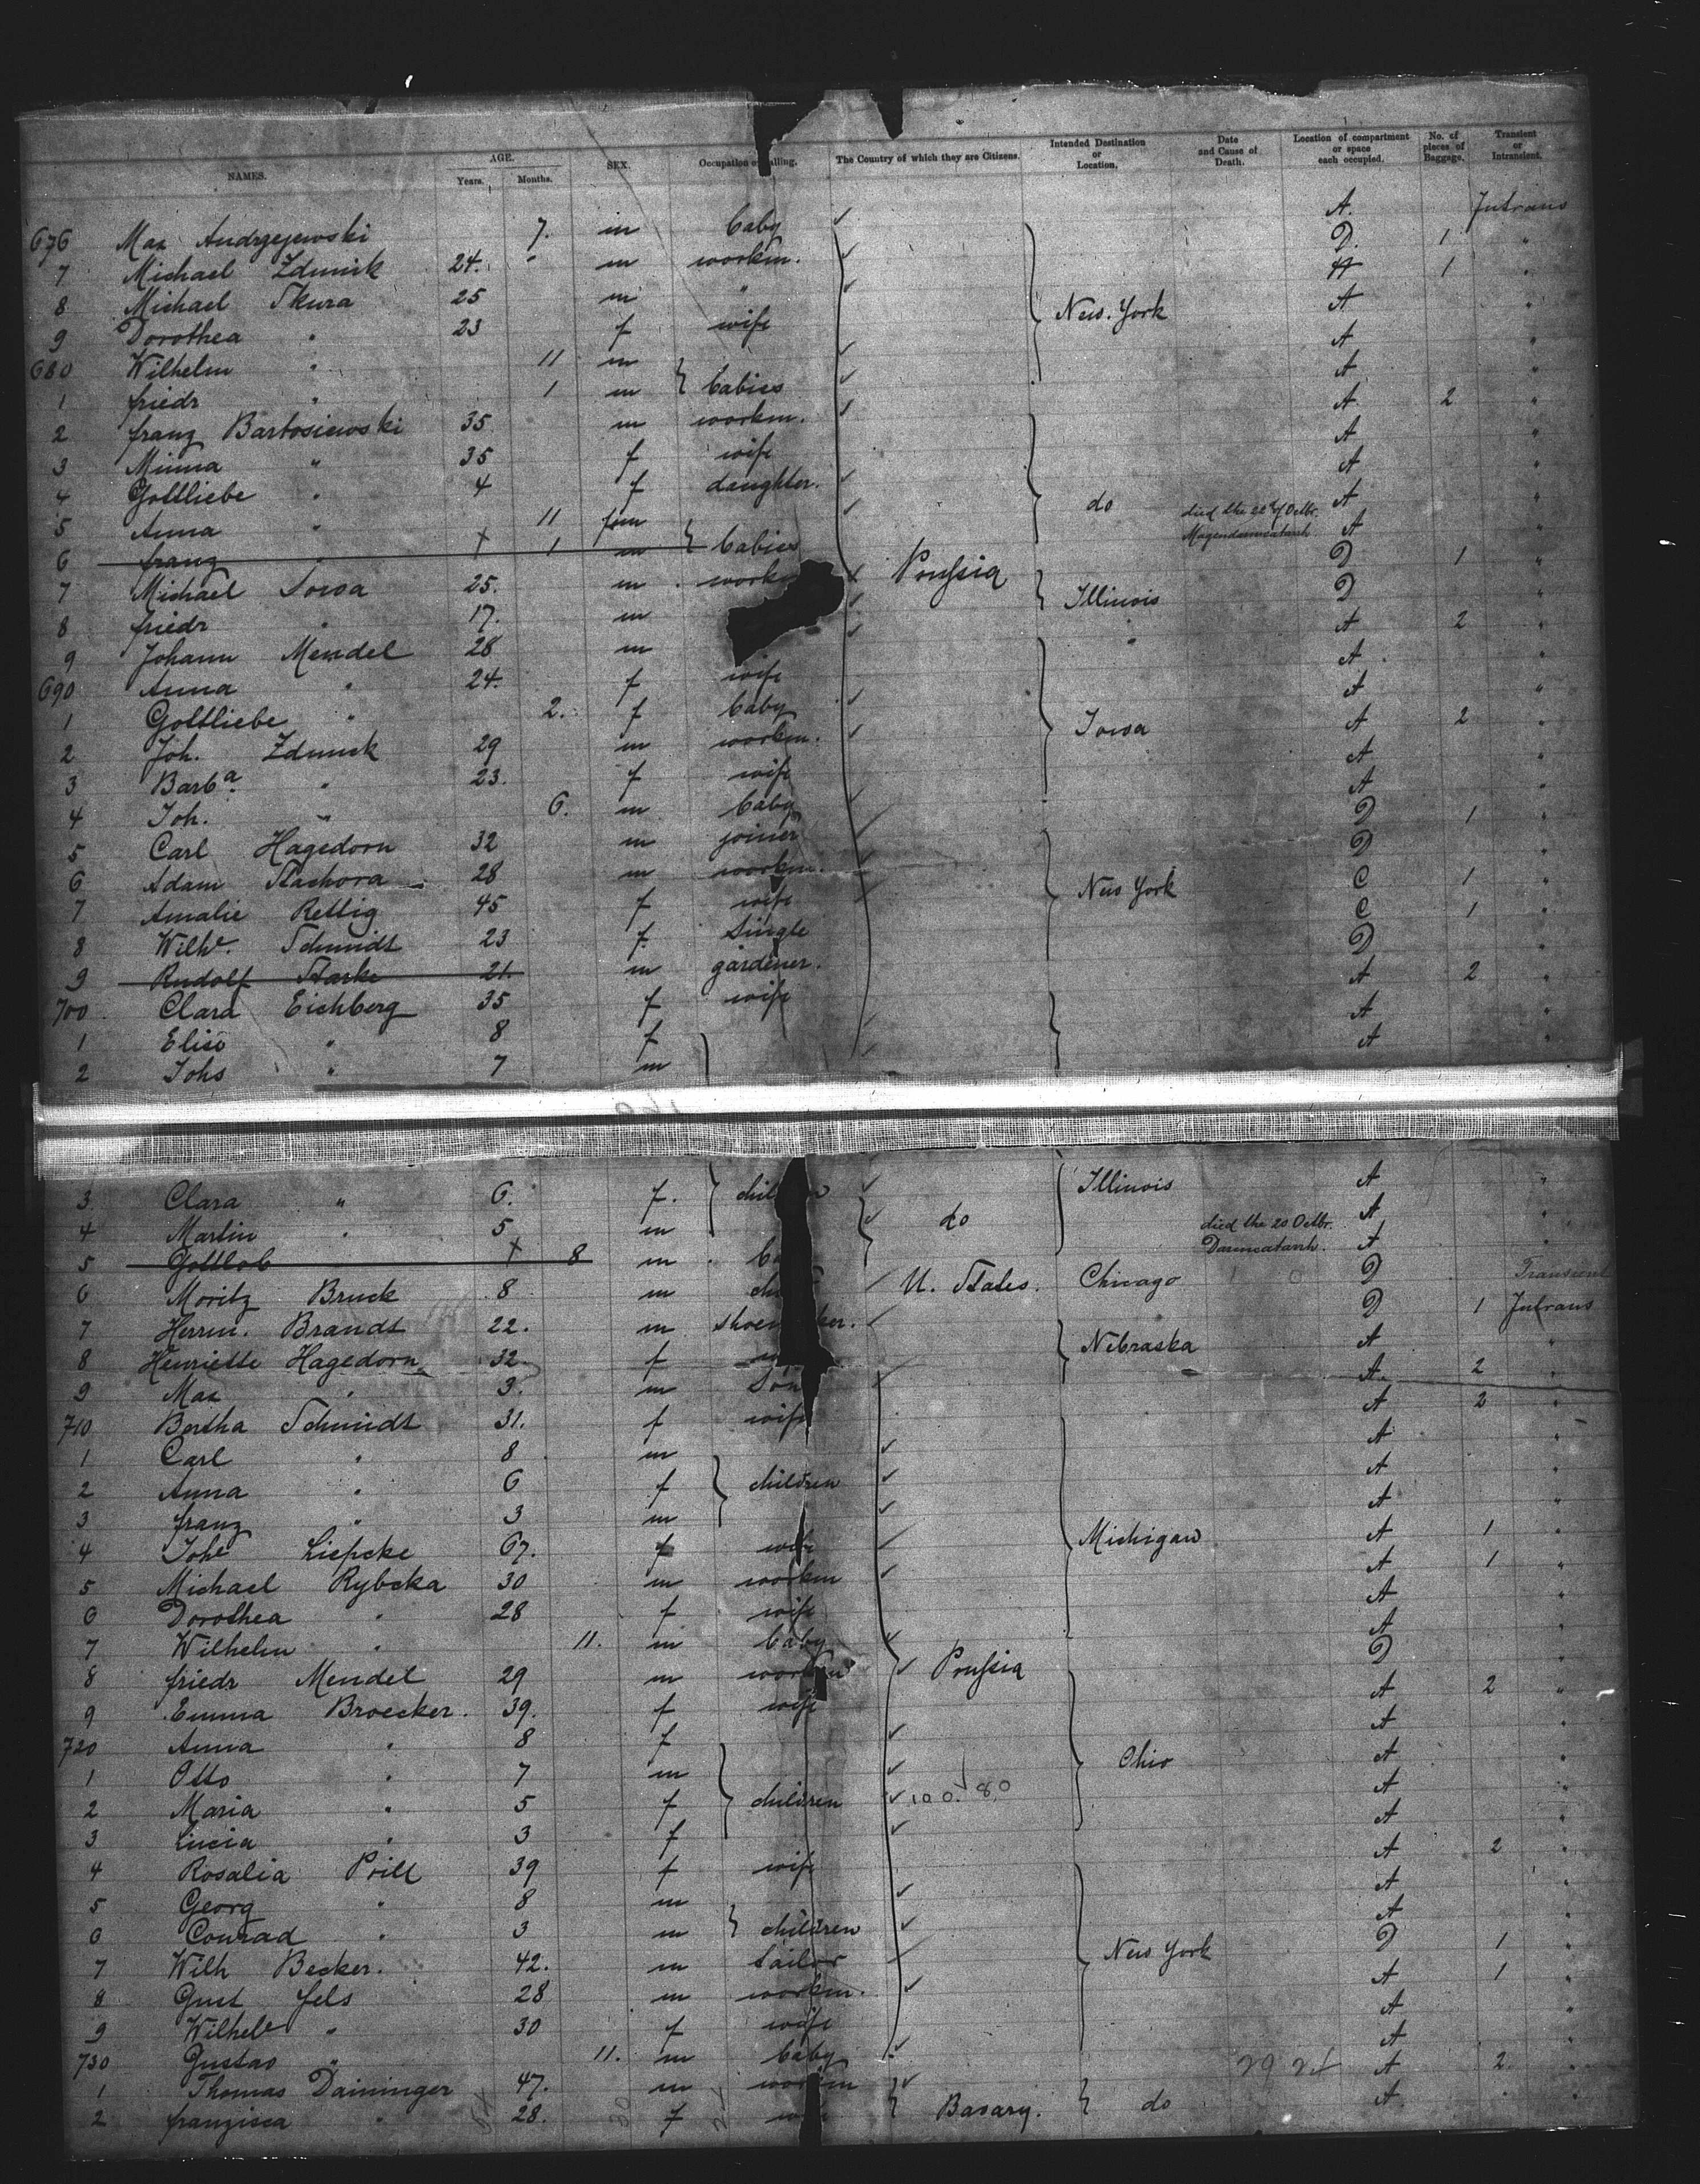 NAMES. AGE. Years. Months. SEX. Occupation or Calling. The Country of which they are Citizens. Intended Destination or Location. Date and Cause of Death. Location of compartment or space each occupied. No. of pieces of Baggage. Transient or Intransient.
676 Max Andrzejewski 7. m baby A. Intrans
7 Michael Zdunik 24. - m workm. D. 1 "
8 Michael Skura 25 m " A 1 "
9 Dorothea " 23 f wife New. York A "
680 Wilhelm " 11 m A "
1 friedr " 1 m babies A "
2 franz Bartosiewski 35 m workm. A 2 "
3 Minna " 35 f wife A "
4 Gottliebe " 4 f daughter. A "
5 Anna " 11 fem do A "
6 franz " + 1 m babies died the 22d of Octbr. A "
7 Michael Sowa 25. m work Prussia D 1 "
8 friedr " 17. m Illinois D "
9 Johann Mendel 28 m " A 2 "
690 Anna " 24. f wife A "
1 Gottliebe " 2. f baby A "
2 Joh. Zdunek 29 m workm. Iowa A 2 "
3 Barba. " 23. f wife A "
4 Joh. " 6. m baby A "
5 Carl Hagedorn 32 m joiner D 1 "
6 Adam Stachora 28 m workm. D "
7 Amalie Rettig 45 f wife New York C 1 "
8 Wilhe. Schmidt 23 f. single C 1 "
9 Rudolf Starke 21. m gardener. D "
700 Clara Eichberg 35 f wife A 2 "
1 Elise " 8 f A "
2 Johs " 7 m A "
3 Clara " 6. f. children Illinois A "
4 Martin " 5 m do A "
5 Gottlob + 8 m ba died the 20 Octbr. Darmcatarrh. A "
6 Moritz Bruck 8 m ch U. States. Chicago D Transient
7 Herrm. Brandt 22. m shoemaker. D 1 Intrans
8 Henriette Hagedorn 32. f Nebraska A "
9 Max " 3. m son A. 2 "
710 Bertha Schmidt 31. f wife A 2 "
1 Carl " 8 m A "
2 Anna " 6 f children A "
3 franz " 3 m A "
4 Johe Liepcke 67. f wife Michigan A 1 "
5 Michael Rybcka 30 m workm A 1 "
6 Dorothea " 28 f wife A "
7 Wilhelm " 11. m baby A "
8 friedr Mendel 29 m workm Prussia D "
9 Emma Broecker. 39. f wife A 2 "
720 Anna " 8 f A "
1 Otto " 7 m Ohio A "
2 Maria " 5 f children 100. 80 A "
3 Lucia " 3 f A "
4 Rosalia Prill 39 f wife A 2 "
5 Georg " 8 m A "
6 Conrad " 3 m children A "
7 Wilh Becker. 42. m tailor New York D 1 "
8 Gust fels 28 m workm. A 1 "
9 Wilhele " 30 f wife A "
730 Gustav " 11. m baby A "
1 Thomas Daininger 47. m workm A 2 "
2 franzisca " 28. f wife Bavary. do A "